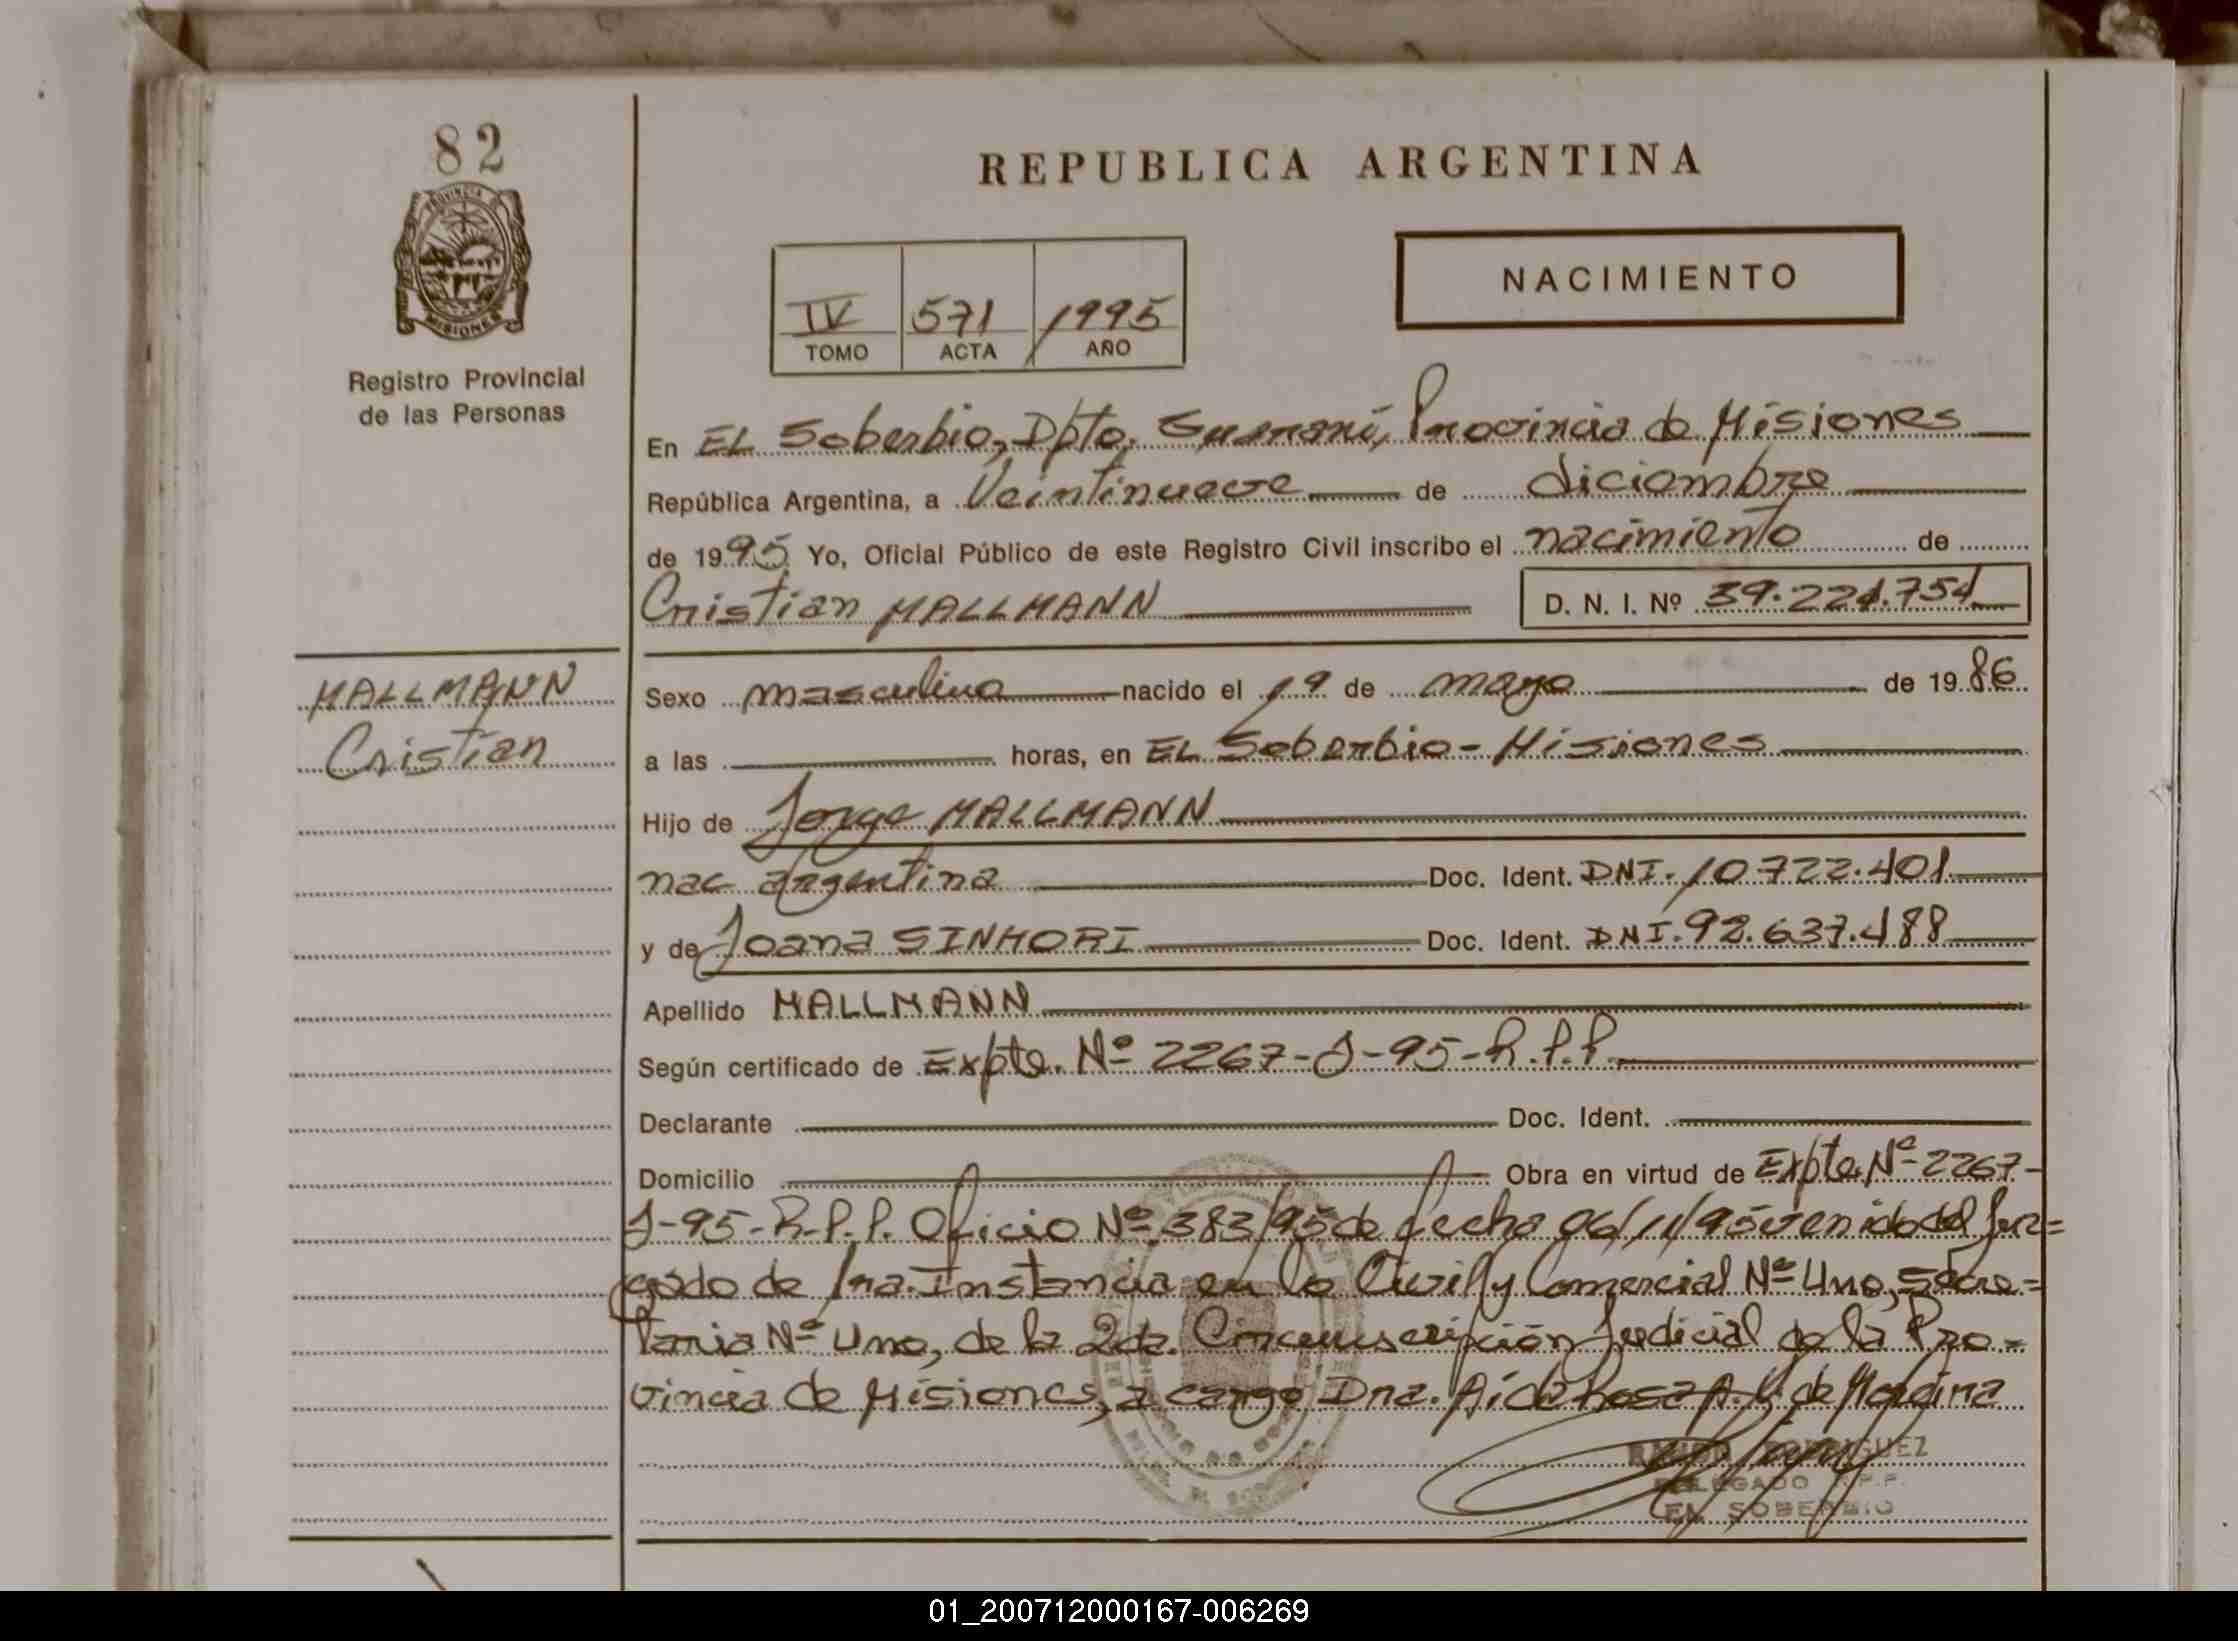 82
PROVINCIA DE
MISIONES
Registro Provincial
de las Personas
REPUBLICA ARGENTINA
IV 571 1995
TOMO ACTA AÑO
NACIMIENTO
En EL Soberbio, Dpto. Guaraní, Provincia de Misiones
República Argentina, a Veintinueve de diciembre
de 1995 Yo, Oficial Público de este Registro Civil inscribo el nacimiento de
Cristian MALLMANN D. N. I. Nº 39.221.754
MALLMANN
Cristian
Sexo masculino nacido el 19 de mayo de 1986
a las horas, en EL Soberbio - Misiones
Hijo de Jorge MALLMANN
nac argentina Doc. Ident. DNI. 10.722.401
y de Joana SINHORI Doc. Ident. DNI. 92.637.488
Apellido MALLMANN
Según certificado de Expte. Nº 2267-J-95-R.P.P.
Declarante Doc. Ident.
Domicilio Obra en virtud de Expte. Nº 2267-
J-95-R.P.P. Oficio Nº 383/95 de fecha 06/11/95 venido del Juz=
gado de 1ra. Instancia en lo Civil y Comercial Nº Uno, Secre=
taria Nº Uno, de la 2da. Circunscripción Judicial de la Pro=
vincia de Misiones, a cargo Dra. Aida Rosa A. de
RODRIGUEZ
DELEGADO R.P.P.
EL SOBERBIO
01_200712000167-006269